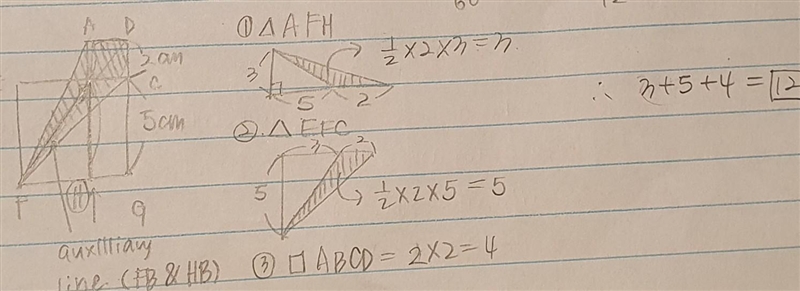 60
12
A D
2cm
C
5cm
F H G
auxilliary
line (FB & HB)
① △AFH
3
5 2
½×2×3=3
② △EFC
3 2
5
½×2×5=5
③ □ABCD = 2×2=4
∴ 3+5+4=12